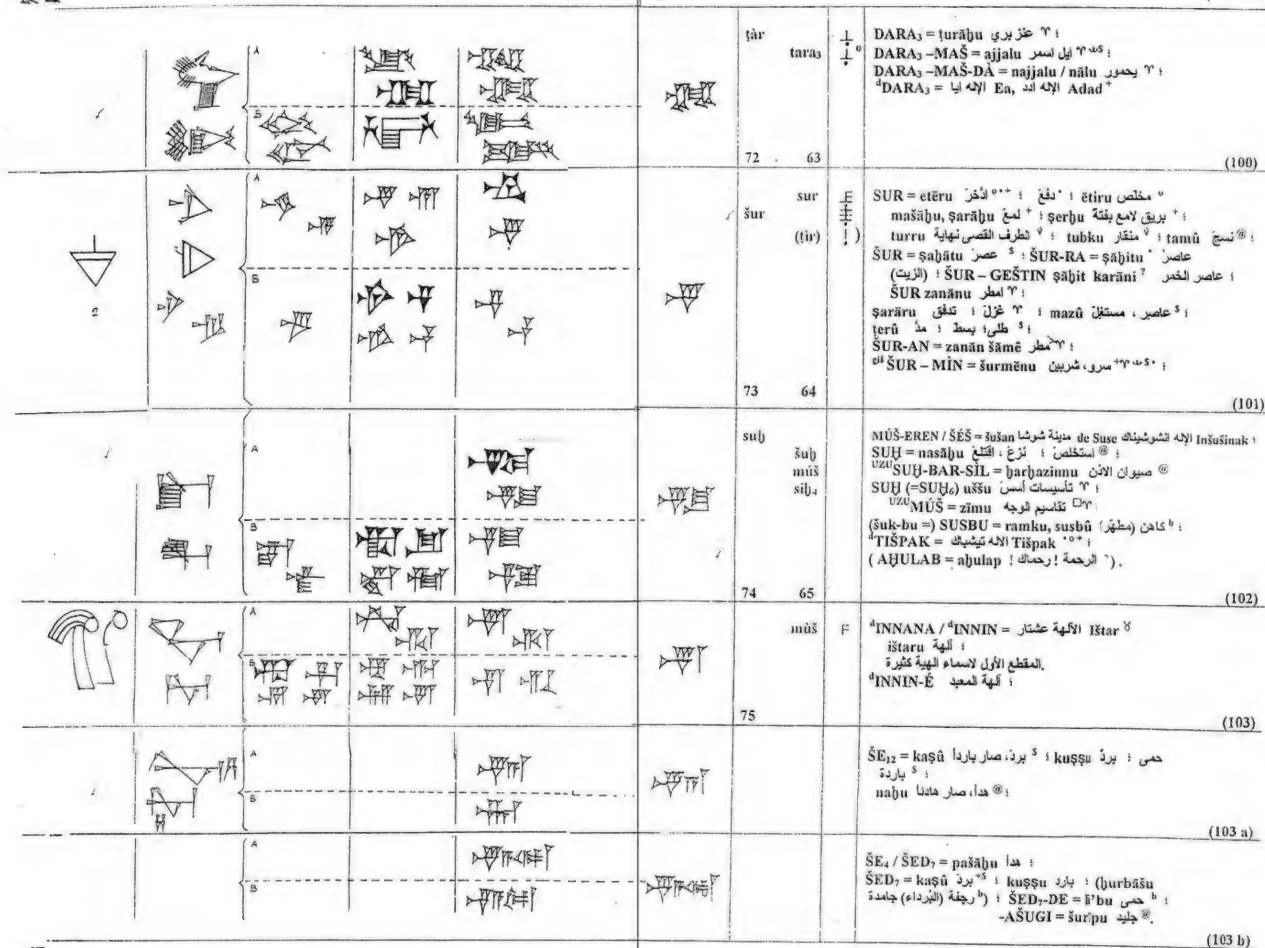 ṭàr
tara₃
DARA₃ = turāḫu عنز بري ♈ ؛
DARA₃ –MAŠ = ajjalu ايل اسمر ؛
DARA₃ –MAŠ-DÀ = najjalu / nālu يحمور ♈ ؛
ᵈDARA₃ = الإله ايا Ea, الإله ادد Adad⁺
A
B
72 63
(100)
sur
šur
(ṭir)
SUR = eṭēru ؛ ˚ دفعَ ؛ ادّخرَ ؛ ēṭiru مخلّص º
mašāḫu, ṣarāḫu لمعَ ⁺ ؛ ṣerḫu بريق لامع بغتة ⁺ ؛
turru الطرف القصى نهاية ؛ tubku منقار ؛ tamû نسجَ @ ؛
ŠUR = ṣaḫātu عصرَ ˢ ؛ ŠUR-RA = ṣāḫitu ˚ عاصر
(الزيت) ؛ ŠUR – GEŠTIN ṣāḫit karāni ? عاصر الخمر ؛
ŠUR zanānu امطر ♈ ؛
ṣarāru تدفق ؛ غزلَ ♈ ؛ mazû عاصر ، مستغلّ ˢ ؛
ṭerû مدّ ؛ طلى؛ بسط ˢ ؛
ŠUR-AN = zanān šāmê مطر ♈ ؛
ᵍⁱˢ ŠUR – MÌN = šurmēnu سرو، شربين ؛
A
B
73 64
(101)
suḫ
šuḫ
múš
siḫ₄
MÚŠ-EREN / ŠÉŠ = šušan مدينة شوشا de Suse الإله انشوشيناك Inšušinak ؛
SUḪ = nasāḫu نزعَ ، اقتلعَ ؛ استخلصَ @ ؛
ᵁᶻᵁSUḪ-BAR-SÌL = ḫarḫazinnu صيوان الاذن @
SUḪ (=SUḪ₆) uššu تأسيسات أسس ♈ ؛
ᵁᶻᵁMÚŠ = zīmu تقاسيم الوجه ♈□ ؛
(šuk-bu =) SUSBU = ramku, susbû كاهن (مطهّر) ᵇ ؛
ᵈTIŠPAK = الاله تيشباك Tišpak ˚º⁺ ؛
( AḪULAB = aḫulap ! الرحمة ! رحماك ).
A
B
74 65
(102)
mùš
ᵈINNANA / ᵈINNIN = الألهة عشتار Ištar ♉
ištaru آلهة ؛
المقطع الأول لاسماء الهية كثيرة.
ᵈINNIN-É آلهة المعبد ؛
A
B
75
(103)
ŠE₁₂ = kaṣû بردَ، صار بارداً ˢ ؛ kuṣṣu بردٌ ؛ حمى
باردة ˢ ؛
naḫu هدأ، صار هادئا @ ؛
A
B
(103 a)
ŠE₄ / ŠED₇ = pašāḫu هدأ ؛
ŠED₇ = kaṣû بردَ ⁺ˢ ؛ kuṣṣu بارد ؛ (ḫurbāšu
رجفة (البُرداء) جامدة ᵇ) ؛ ŠED₇-DE = li'bu حمى ᵇ ؛
-AŠUGI = šurīpu جليد @.
A
B
(103 b)